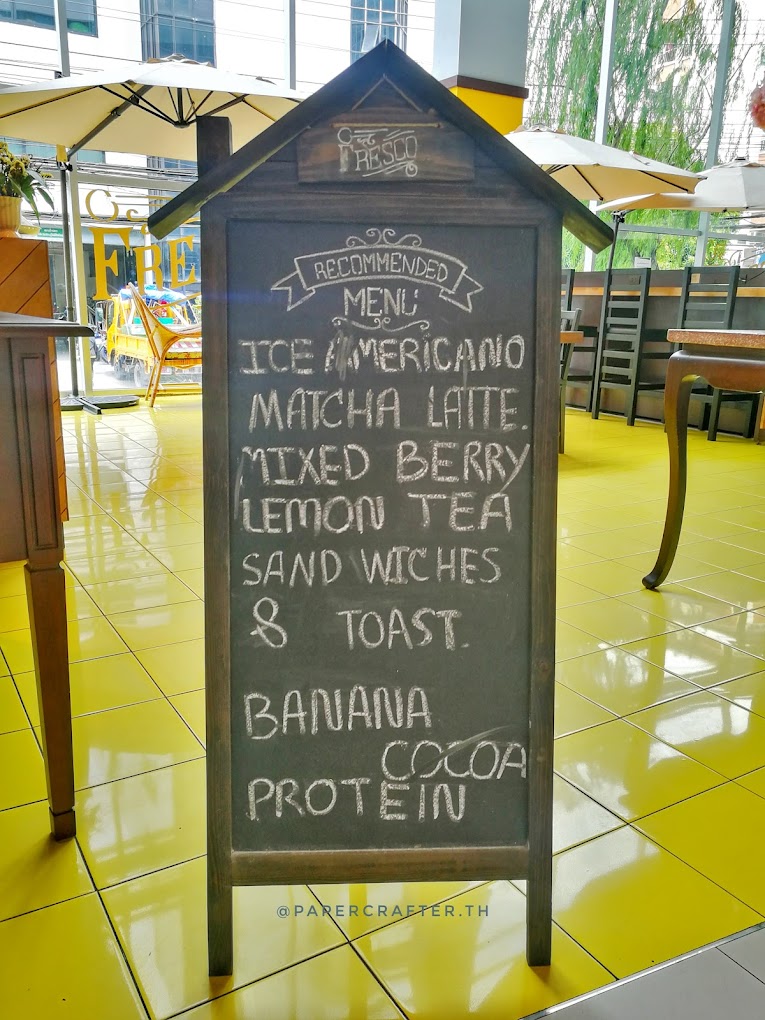 FRESCO
FRE
RECOMMENDED
MENU
ICE AMERICANO
MATCHA LATTE.
MIXED BERRY
LEMON TEA
SANDWICHES
& TOAST.
BANANA
COCOA
PROTEIN
@PAPERCRAFTER.TH